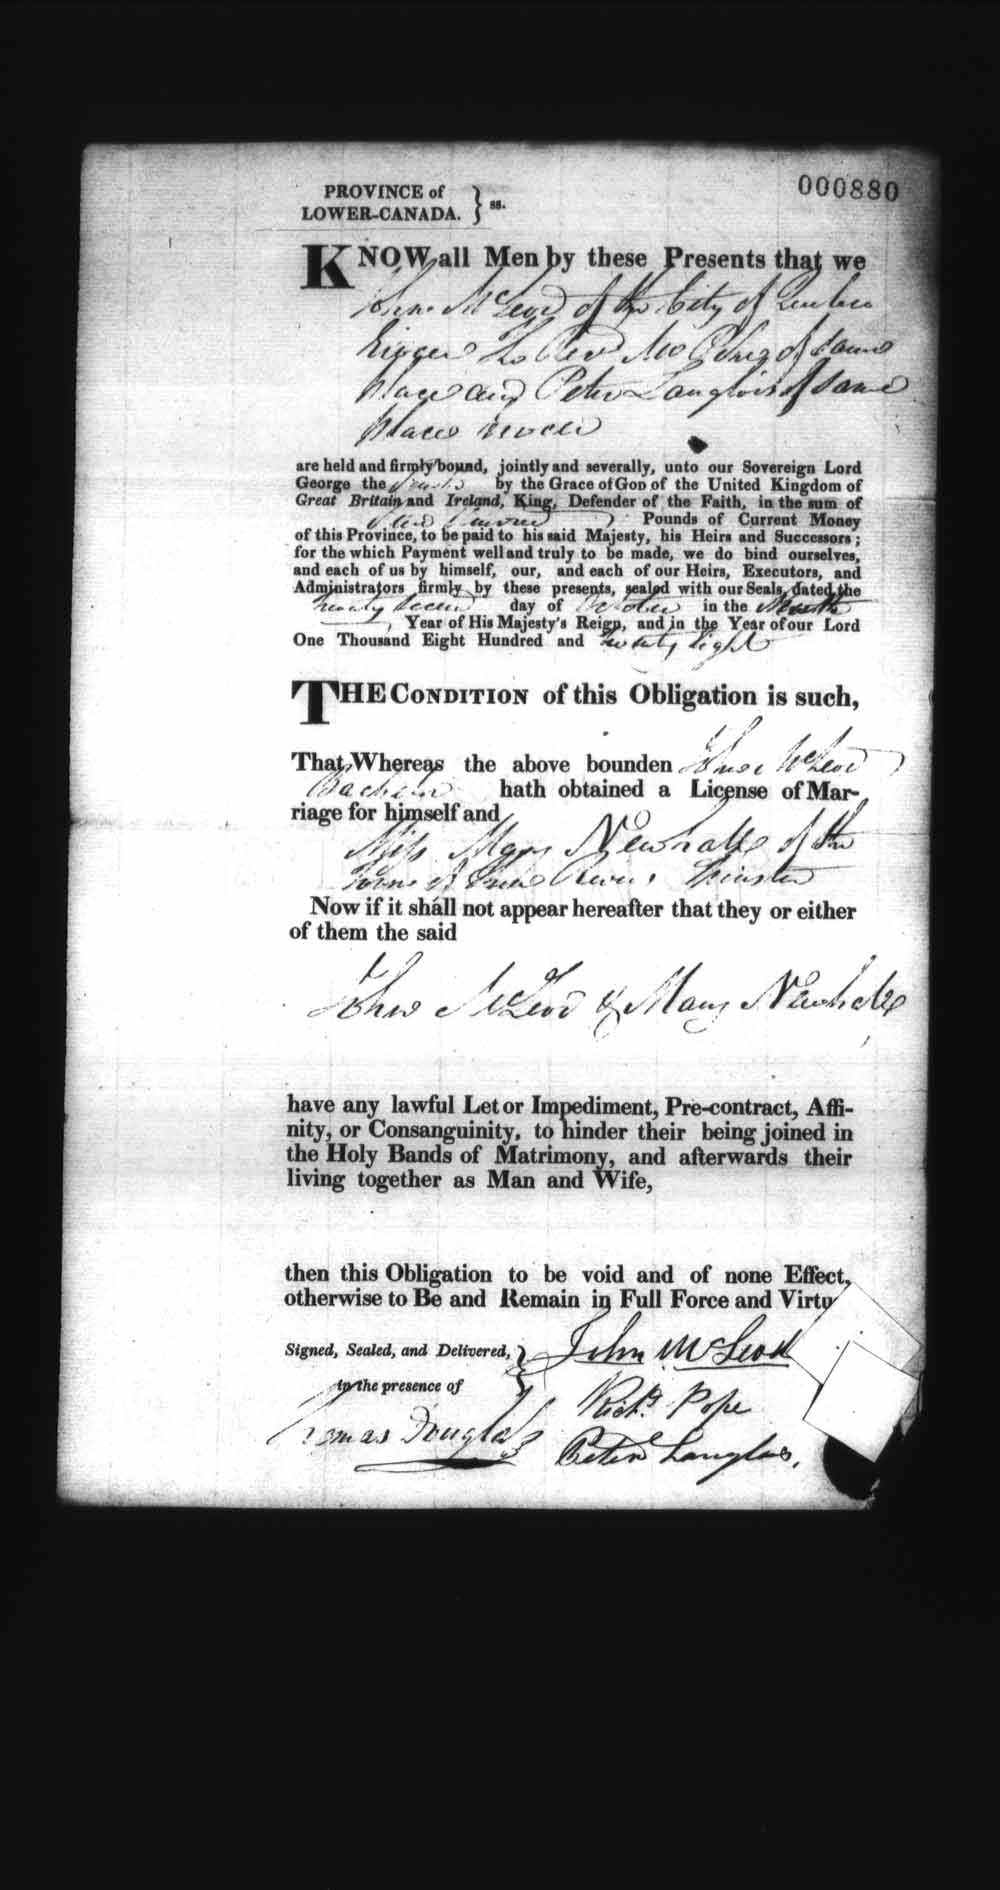 000880
PROVINCE of
LOWER-CANADA. } ss.
KNOW all Men by these Presents that we
John McLeod of the City of Quebec
Rigger of same
place and Peter Langlois of same
place
are held and firmly bound, jointly and severally, unto our Sovereign Lord
George the Fourth by the Grace of GOD of the United Kingdom of
Great Britain and Ireland, King, Defender of the Faith, in the sum of
Pounds of Current Money
of this Province, to be paid to his said Majesty, his Heirs and Successors;
for the which Payment well and truly to be made, we do bind ourselves,
and each of us by himself, our, and each of our Heirs, Executors, and
Administrators firmly by these presents, sealed with our Seals, dated the
twenty second day of October in the Ninth
Year of His Majesty's Reign, and in the Year of our Lord
One Thousand Eight Hundred and twenty Eight
THE CONDITION of this Obligation is such,
That Whereas the above bounden John McLeod
Bachelor hath obtained a License of Mar-
riage for himself and
Miss Mary Newhall of the
Town of Three Rivers Spinster
Now if it shall not appear hereafter that they or either
of them the said
John McLeod & Mary Newhall
have any lawful Let or Impediment, Pre-contract, Affi-
nity, or Consanguinity, to hinder their being joined in
the Holy Bands of Matrimony, and afterwards their
living together as Man and Wife,
then this Obligation to be void and of none Effect,
otherwise to Be and Remain in Full Force and Virtu
Signed, Sealed, and Delivered, } John McLeod
in the presence of Richd Pope
Thomas Douglas Peter Langlois.